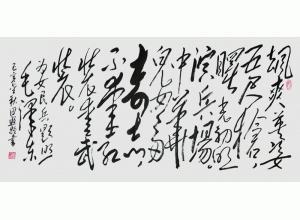 飒爽英姿
五尺枪
曙光初照
演兵场
中华
儿女多
奇志
不爱红
装爱武
装
为女民兵题照
毛泽东